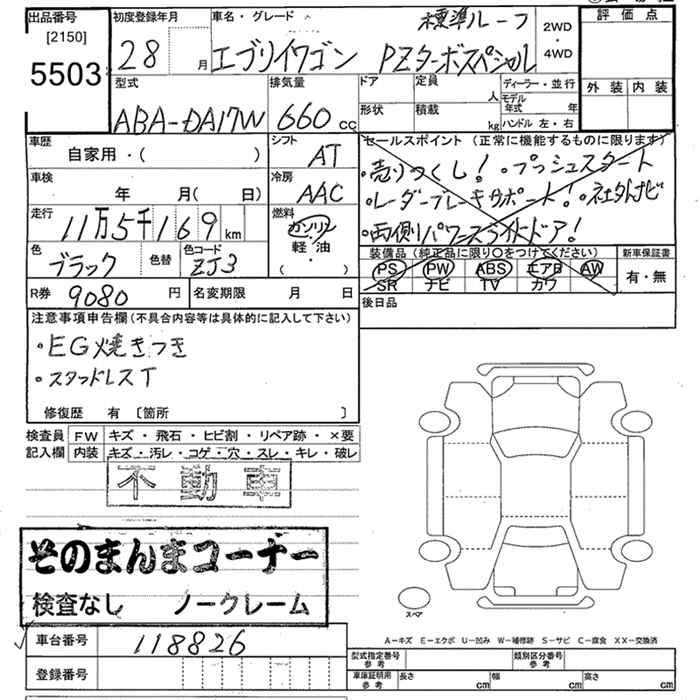 出品番号
[2150]
5503
初度登録年月
28 月
車名・グレード
エブリイワゴン
標準ルーフ
PZターボスペシャル
2WD
・
4WD
評価点
外装 内装
型式
ABA-DA17W
排気量
660 cc
ドア
形状
定員 人
積載 kg
ディーラー・並行
モデル年式 年
ハンドル 左・右
車歴
自家用・( )
シフト
AT
車検
年 月( 日)
冷房
AAC
走行
11万5千169 km
燃料
ガソリン
軽・油
( ・ )
色
ブラック
色替
色コード
ZJ3
R券 9080 円
名変期限 月 日
セールスポイント (正常に機能するものに限ります)
・売りつくし!・プッシュスタート
・レーダーブレーキサポート!・社外ナビ
・両側パワースライドドア!
装備品(純正品に限り○をつけてください)
PS PW ABS エアB AW
SR ナビ TV カワ
新車保証書
有・無
後日品
注意事項申告欄(不具合内容等は具体的に記入して下さい)
・EG焼きつき
・スタッドレスT
修復歴 有 〔箇所 〕
検査員 FW キズ・飛石・ヒビ割・リペア跡・×要
記入欄 内装 キズ・汚レ・コゲ・穴・スレ・キレ・破レ
不動車
そのまんまコーナー
検査なし ノークレーム
スペア
A－キズ E－エクボ U－凹み W－補修跡 S－サビ C－腐食 XX－交換済
車台番号 118826
登録番号
型式指定番号
参考
類別区分番号
参考
車庫証明用
参考
長さ cm 幅 cm 高さ cm